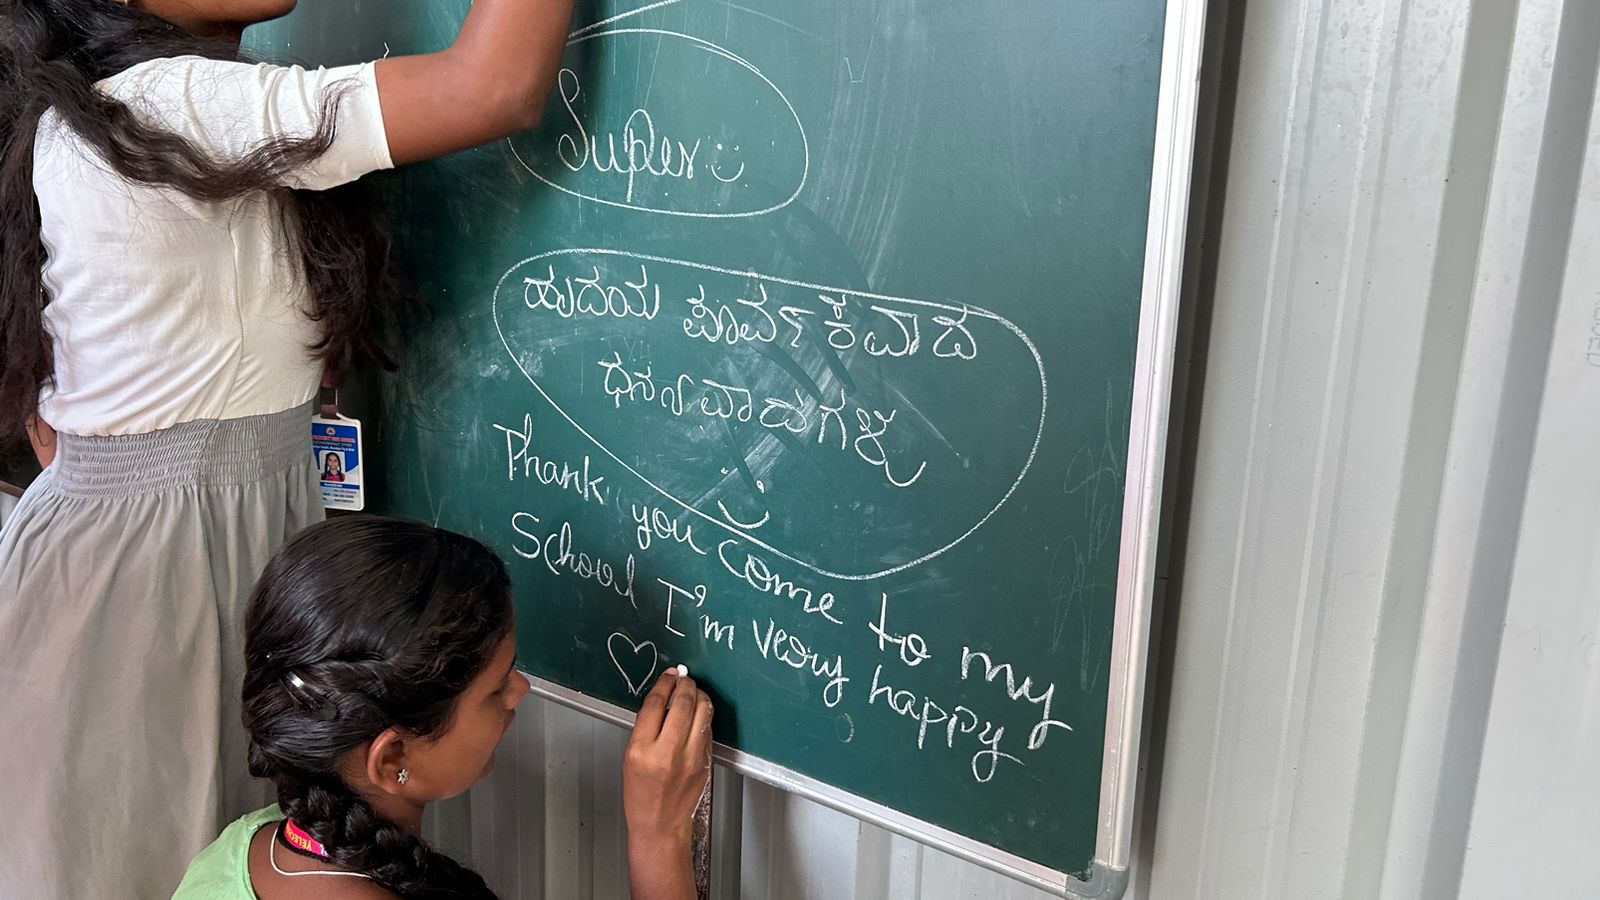 Super
ಹುದಯ ಪೂರ್ವಕವಾದ
ಧನ್ಯವಾದಗಳು
Thank you come to my
School I'm very happy